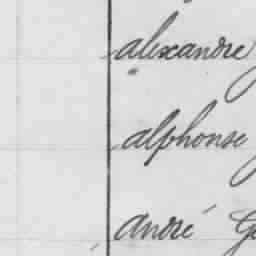 alexandre
alphonse
andré